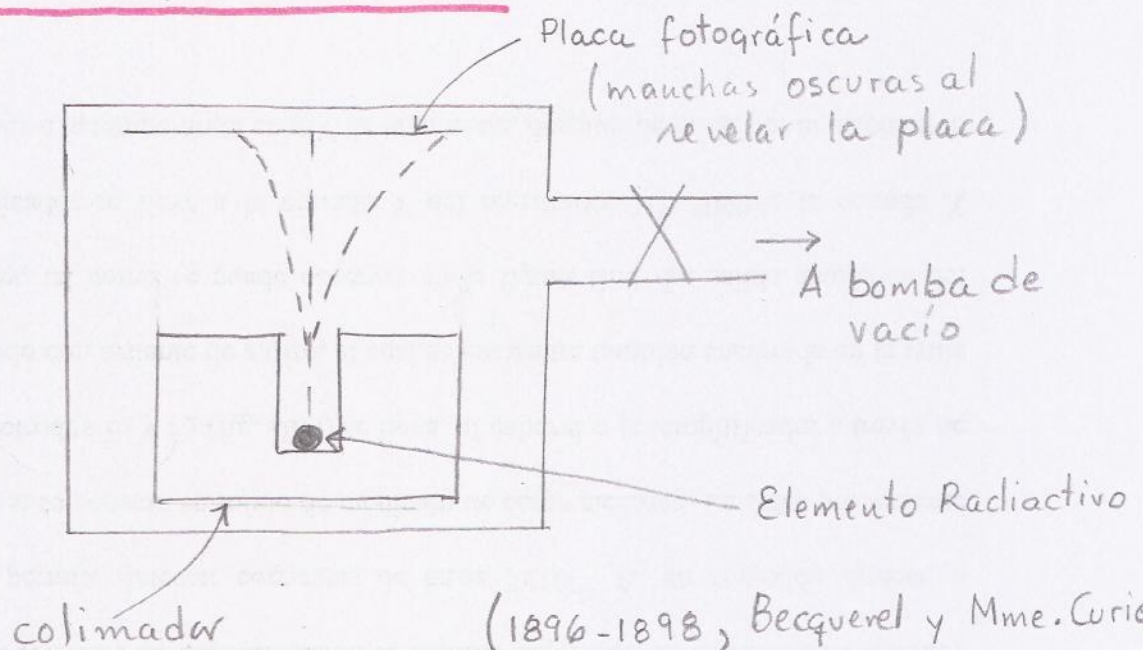 Placa fotográfica
(manchas oscuras al
revelar la placa)
A bomba de
vacío
Elemento Radiactivo
colimador
(1896-1898, Becquerel y Mme. Curie